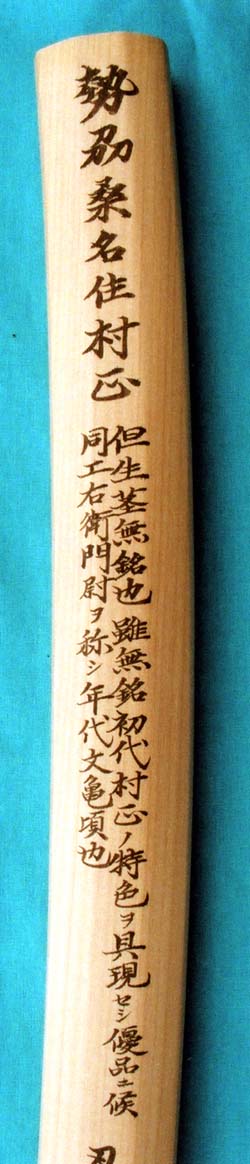 勢刕桑名住村正
但生茎無銘也雖無銘初代村正ノ特色ヲ具現セシ優品ニ候
同工右衛門尉ヲ称シ年代文亀頃也
刃